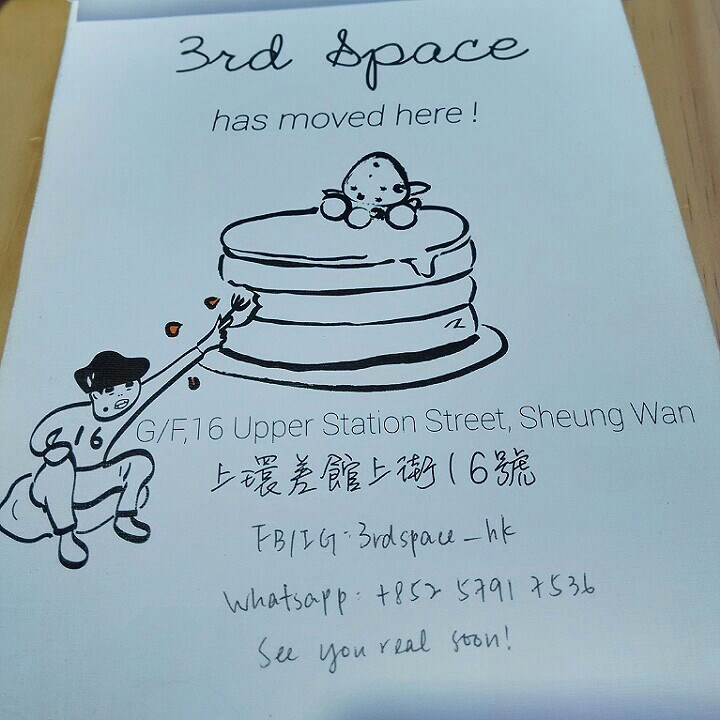 3rd Space
has moved here!
16
G/F,16 Upper Station Street, Sheung Wan
上環差館上街16號
FB/IG: 3rdspace_hk
Whatsapp: +852 5791 7536
See you real soon!